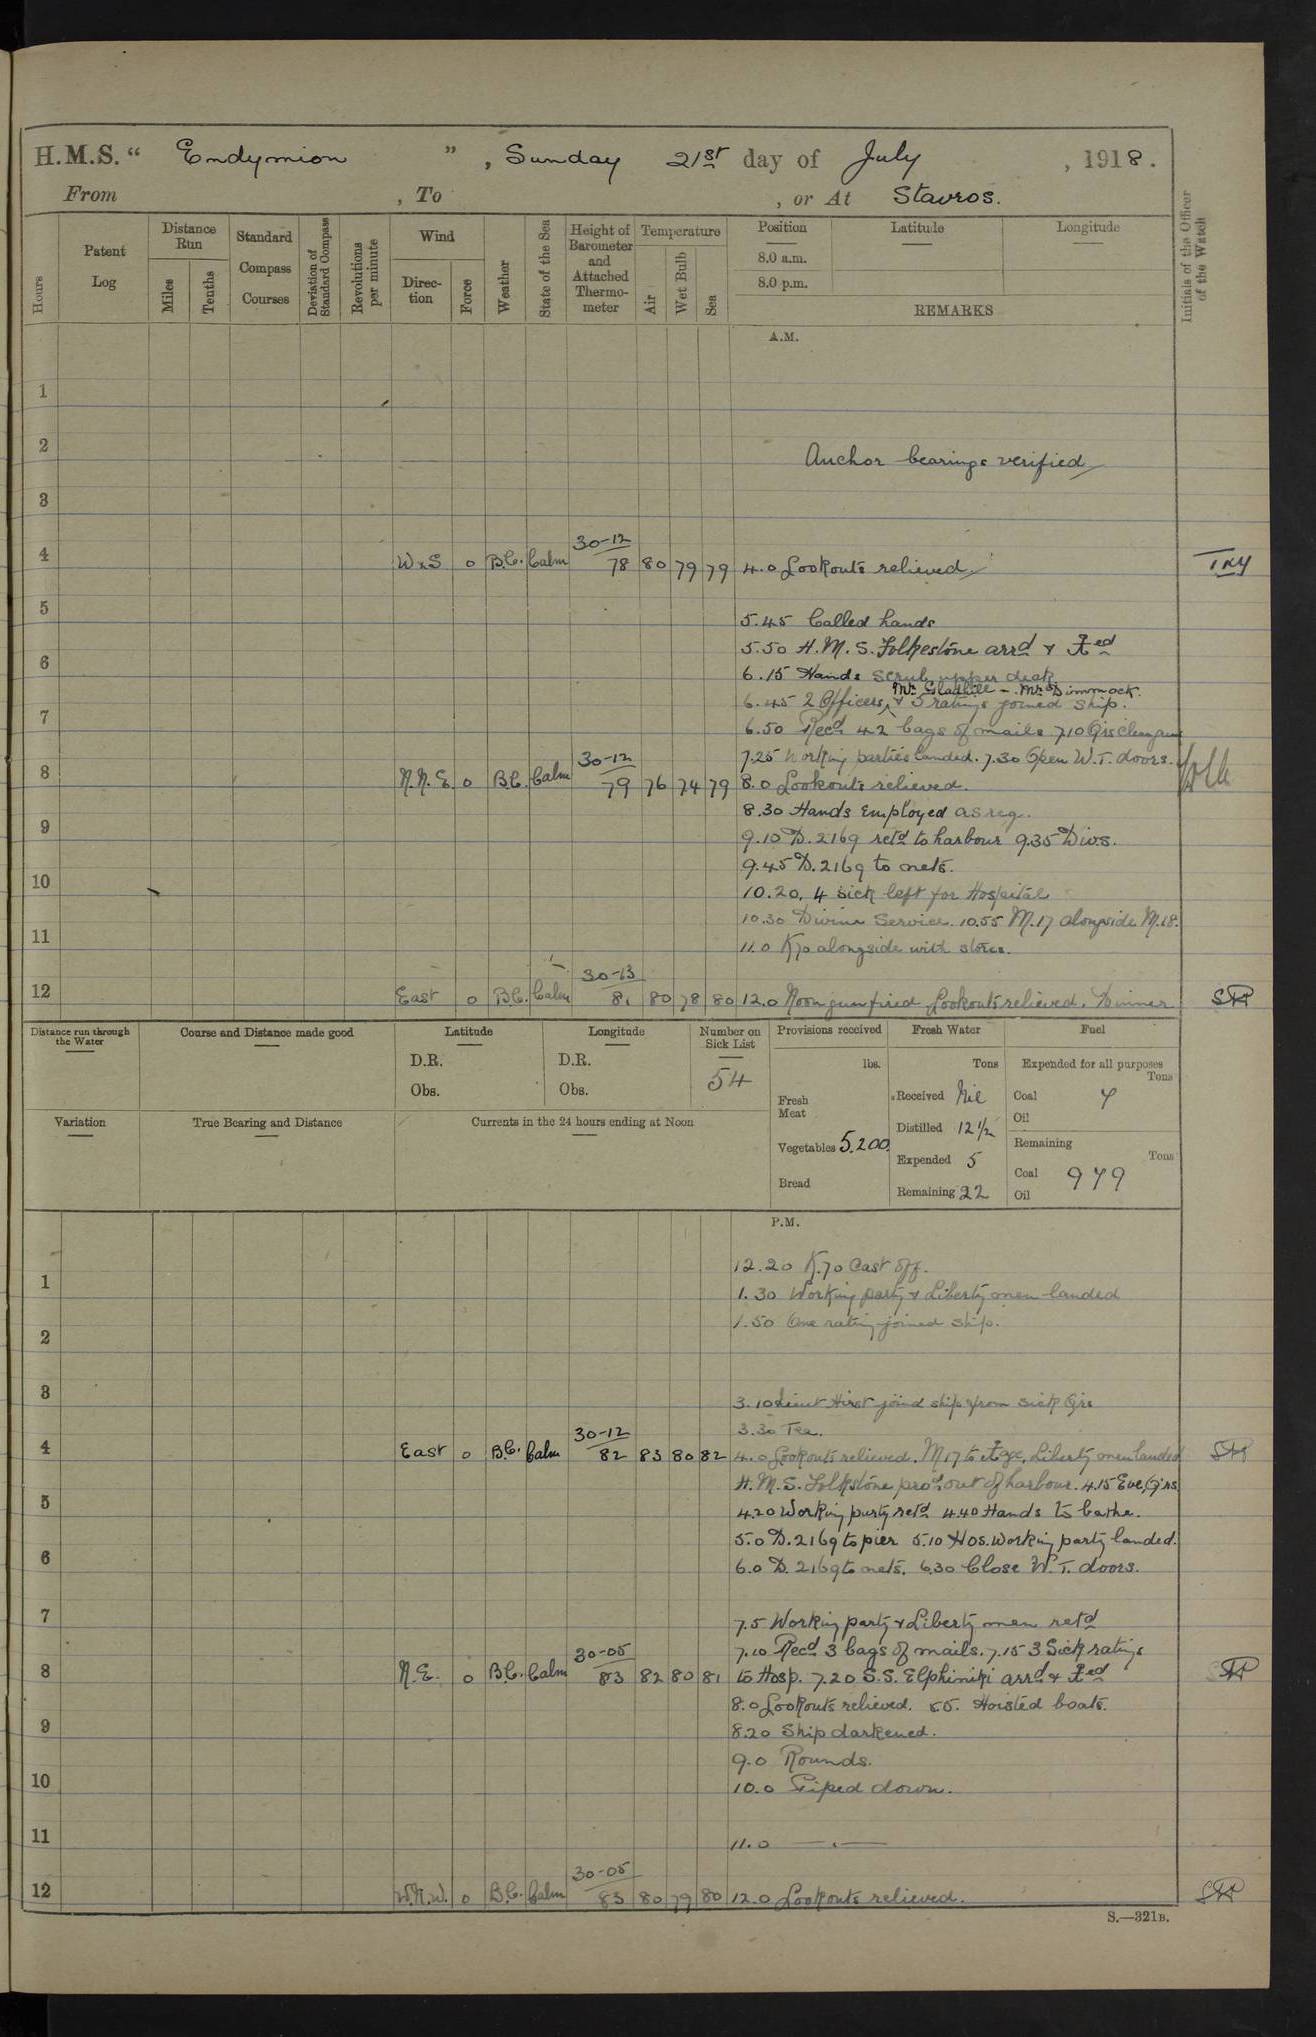 H.M.S. " Endymion " , Sunday 21st day of July , 1918.
From , To , or At Stavros.
Hours
Patent Log
Distance Run
Miles
Tenths
Standard Compass Courses
Deviation of Standard Compass
Revolutions per minute
Wind
Direction
Force
Weather
State of the Sea
Height of Barometer and Attached Thermometer
Temperature
Air
Wet Bulb
Sea
Position
8.0 a.m.
8.0 p.m.
Latitude
Longitude
REMARKS
Initials of the Officer of the Watch
A.M.
1
2
Anchor bearings verified
3
30-12
4 WxS 0 B.C. Calm 78 80 79 79 4.0 Lookouts relieved
5
5.45 Called hands
5.50 H.M.S. Folkestone arrd & ed
6
6.15 Hands scrub upper deck
Mr. Gladhill - Mr. Dimmock.
6.45 2 Officers, & 5 ratings joined ship.
7
6.50 Recd 42 bags of mails 7.10 Qrs clean guns
30-12 7.25 Working parties landed. 7.30 Open W.T. doors.
8 N.N.E. 0 B.C. Calm 79 76 74 79 8.0 Lookouts relieved.
8.30 Hands Employed as req.
9
9.10 D.2169 retd to harbour 9.35 Divs.
9.45 D.2169 to nets.
10
10.20. 4 sick left for Hospital
10.30 Divine Service. 10.55 M.17 alongside M.18.
11
11.0 K70 alongside with stores.
30-13
12 East 0 B.C. Calm 81 80 78 80 12.0 Noon gun fired Lookouts relieved. Dinner
Distance run through the Water
Course and Distance made good
Latitude
D.R.
Obs.
Longitude
D.R.
Obs.
Number on Sick List
54
Provisions received
lbs.
Fresh Meat
Vegetables 5.200.
Bread
Fresh Water
Tons
Received Nil
Distilled 12 1/2
Expended 5
Remaining 22
Fuel
Expended for all purposes
Tons
Coal 7
Oil
Remaining
Tons
Coal 979
Oil
Variation
True Bearing and Distance
Currents in the 24 hours ending at Noon
P.M.
12.20 K.70 Cast off.
1
1.30 Working party & Liberty men landed
1.50 One rating joined ship.
2
3
3.10 Lieut Hirst joind ship from sick Qrs
30-12 3.30 Tea.
4 East 0 B.C. Calm 82 83 80 82 4.0 Lookouts relieved. M17 to age, Liberty men landed
H.M.S. Folkstone prod out of harbour. 4.15 Eve. Qrs.
5
4.20 Working party retd 4.40 Hands to bathe.
5.0 D.2169 to pier 5.10 Hos. Working party landed.
6
6.0 D.2169 to nets. 6.30 Close W.T. doors.
7
7.5 Working party & Liberty men retd
30-05 7.10 Recd 3 bags of mails. 7.15 3 Sick ratings
8 N.E. 0 B.C. Calm 83 82 80 81 to Hosp. 7.20 S.S. Elphiniki arrd & ed
8.0 Lookouts relieved. 8.5. Hoisted boats.
9
8.20 Ship darkened.
9.0 Rounds.
10
10.0 Piped down.
11
11.0
30-05
12 W.N.W. 0 B.C. Calm 83 80 79 80 12.0 Lookouts relieved.
S.—321B.